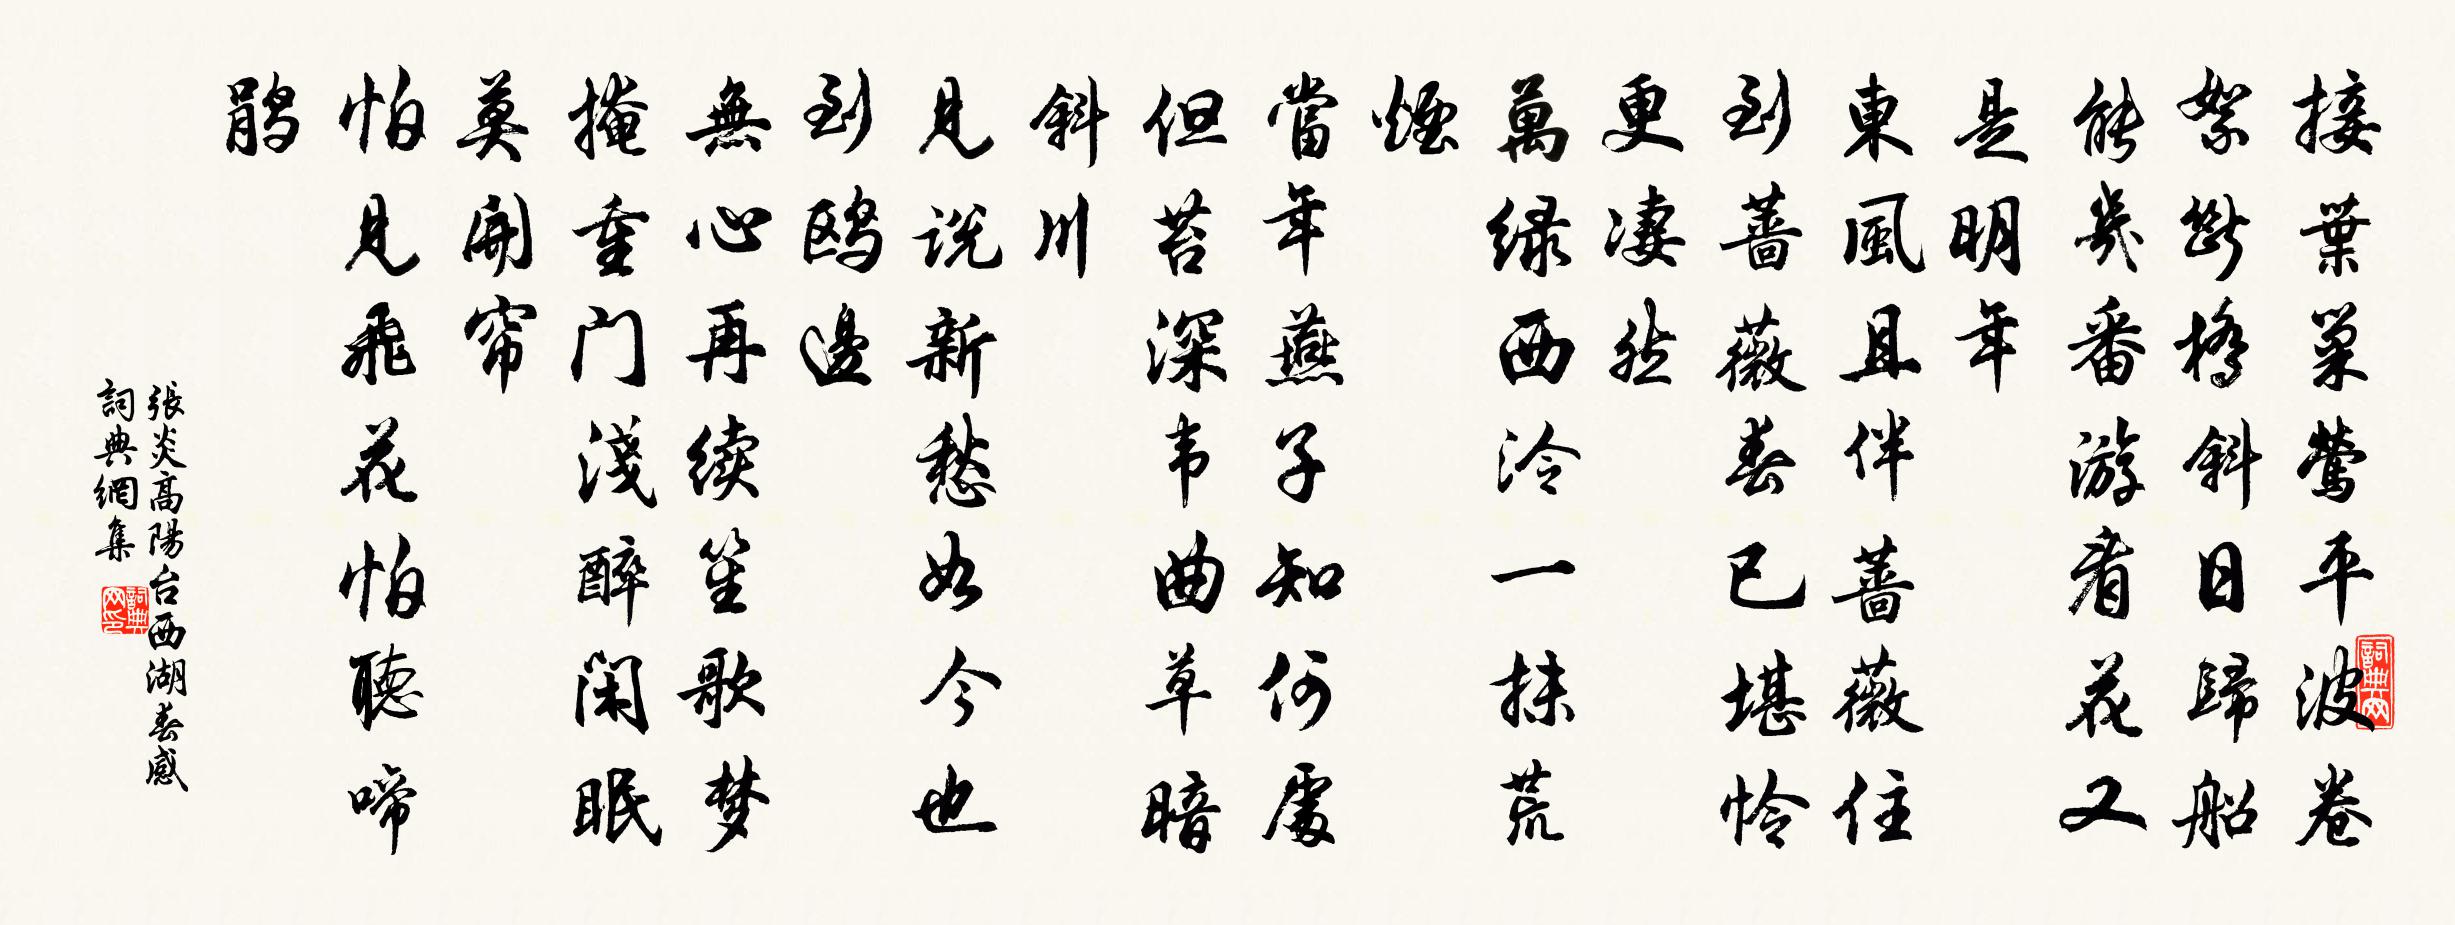 接葉巢鶯平波卷
絮斷橋斜日歸船
能幾番游看花又
是明年
東風且伴薔薇住
到薔薇春已堪怜
更凄然
萬绿西泠一抹荒
煙
當年燕子知何處
但苔深韦曲草暗
斜川
見说新愁如今也
到鸥邊
無心再续笙歌梦
掩重门淺醉闲眠
莫開帘
怕見飛花怕聽啼
鹃
張炎高陽台西湖春感
詞典網集
詞典網印
詞典網